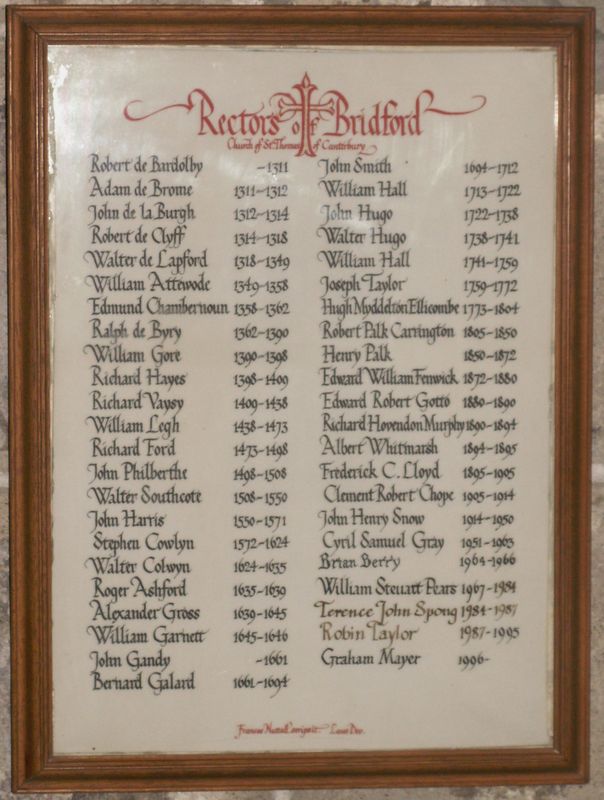 Rectors of Bridford
Church of St. Thomas of Canterbury
Robert de Bardolby -1311
Adam de Brome 1311-1312
John de la Burgh 1312-1314
Robert de Clyff 1314-1318
Walter de Lapford 1318-1349
William Attewode 1349-1358
Edmund Chambernoun 1358-1362
Ralph de Byry 1362-1390
William Gore 1390-1398
Richard Hayes 1398-1409
Richard Vaysy 1409-1438
William Legh 1438-1473
Richard Ford 1473-1498
John Philberthe 1498-1508
Walter Southcote 1508-1550
John Harris 1550-1571
Stephen Cowlyn 1572-1624
Walter Colwyn 1624-1635
Roger Ashford 1635-1639
Alexander Gross 1639-1645
William Garnett 1645-1646
John Gandy -1661
Bernard Galard 1661-1694
John Smith 1694-1712
William Hall 1713-1722
John Hugo 1722-1738
Walter Hugo 1738-1741
William Hall 1741-1759
Joseph Taylor 1759-1772
Hugh Myddelton Ellicombe 1773-1804
Robert Palk Carrington 1805-1850
Henry Palk 1850-1872
Edward William Fenwick 1872-1880
Edward Robert Gotto 1880-1890
Richard Hovendon Murphy 1890-1894
Albert Whitmarsh 1894-1895
Frederick C. Lloyd 1895-1905
Clement Robert Chope 1905-1914
John Henry Snow 1914-1950
Cyril Samuel Gray 1951-1963
Brian Berry 1964-1966
William Steuart Pears 1967-1984
Terence John Spong 1984-1987
Robin Taylor 1987-1995
Graham Mayer 1996-
Laus Deo.